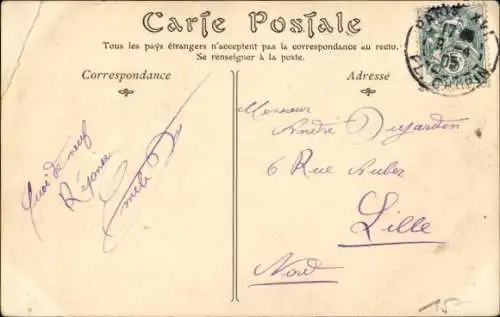 Carte Postale
Tous les pays étrangers n'acceptent pas la correspondance au recto.
Se renseigner à la poste.
Correspondance
Adressé
Quoi de neuf
Réponse
Monsieur
André Dujardin
6 Rue Auber
Lille
Nord
PARIS XVI
17
05
15-